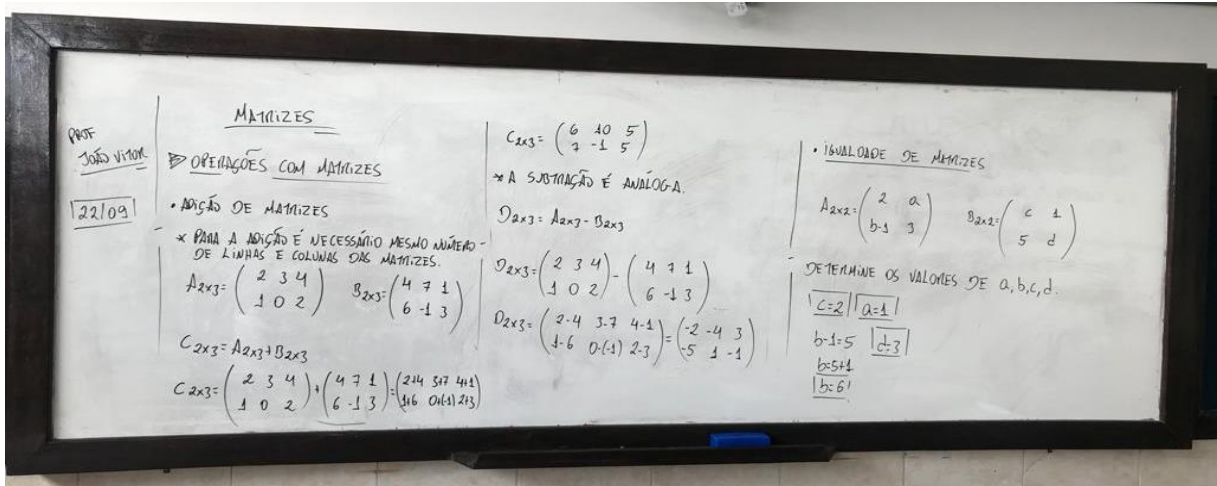 PROF
JOÃO VITOR
22/09
MATRIZES
OPERAÇÕES COM MATRIZES
• ADIÇÃO DE MATRIZES
* PARA A ADIÇÃO É NECESSÁRIO MESMO NÚMERO
DE LINHAS E COLUNAS DAS MATRIZES.
A2x3= ( 2 3 4 ) B2x3= ( 4 7 1 )
( 1 0 2 ) ( 6 -1 3 )
C2x3= A2x3+B2x3
C2x3= ( 2 3 4 ) + ( 4 7 1 ) = ( 2+4 3+7 4+1 )
( 1 0 2 ) ( 6 -1 3 ) ( 1+6 0+(-1) 2+3 )
C2x3= ( 6 10 5 )
( 7 -1 5 )
* A SUBTRAÇÃO É ANÁLOGA.
D2x3= A2x3- B2x3
D2x3= ( 2 3 4 ) - ( 4 7 1 )
( 1 0 2 ) ( 6 -1 3 )
D2x3= ( 2-4 3-7 4-1 ) = ( -2 -4 3 )
( 1-6 0-(-1) 2-3 ) ( -5 1 -1 )
• IGUALDADE DE MATRIZES
A2x2= ( 2 a ) B2x2= ( c 1 )
( b-1 3 ) ( 5 d )
DETERMINE OS VALORES DE a,b,c,d.
c=2 a=1
b-1=5 d=3
b=5+1
b=6